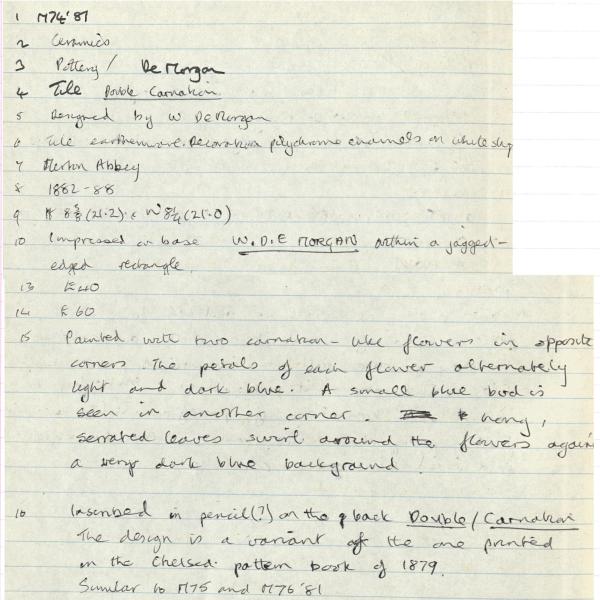 1 M74'81
2 Ceramics
3 Pottery / De Morgan
4 Tile Double Carnation
5 Designed by W DeMorgan
6 Tile earthenware. Decoration polychrome enamels on white slip
7 Merton Abbey
8 1882-88
9 H 8⅜ (21.2) x W 8¼ (21.0)
10 Impressed on base W. D. E MORGAN within a jagged-
edged rectangle.
13 £40
14 £60
15 Painted with two carnation-like flowers in opposite
corners. The petals of each flower alternately
light and dark blue. A small blue bud is
seen in another corner. Long,
serrated leaves swirl around the flowers again
a very dark blue background.
16 Inscribed in pencil(?) on the back Double / Carnation
The design is a variant of the one printed
in the Chelsea pattern book of 1879.
Similar to M75 and M76'81